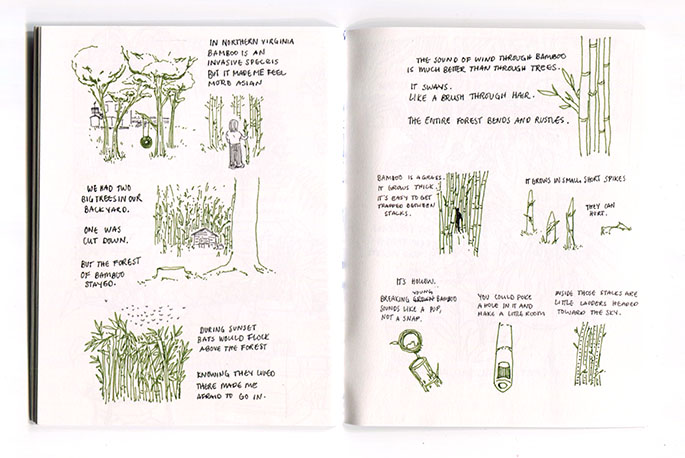 IN NORTHERN VIRGINIA
BAMBOO IS AN
INVASIVE SPECIES
BUT IT MADE ME FEEL
MORE ASIAN
WE HAD TWO
BIG TREES IN OUR
BACKYARD.
ONE WAS
CUT DOWN.
BUT THE FOREST
OF BAMBOO
STAYED.
DURING SUNSET
BATS WOULD FLOCK
ABOVE THE FOREST
KNOWING THEY LIVED
THERE MADE ME
AFRAID TO GO IN.
THE SOUND OF WIND THROUGH BAMBOO
IS MUCH BETTER THAN THROUGH TREES.
IT SWAYS.
LIKE A BRUSH THROUGH HAIR.
THE ENTIRE FOREST BENDS AND RUSTLES.
BAMBOO IS A GRASS.
IT GROWS THICK.
IT'S EASY TO GET
TRAPPED BETWEEN
STALKS.
IT GROWS IN SMALL, SHORT SPIKES
THEY CAN
HURT.
IT'S HOLLOW.
YOUNG
BREAKING GROWN BAMBOO
SOUNDS LIKE A POP,
NOT A SNAP.
YOU COULD POKE
A HOLE IN IT AND
MAKE A LITTLE ROOM
INSIDE THOSE STALKS ARE
LITTLE LADDERS HEADED
TOWARD THE SKY.